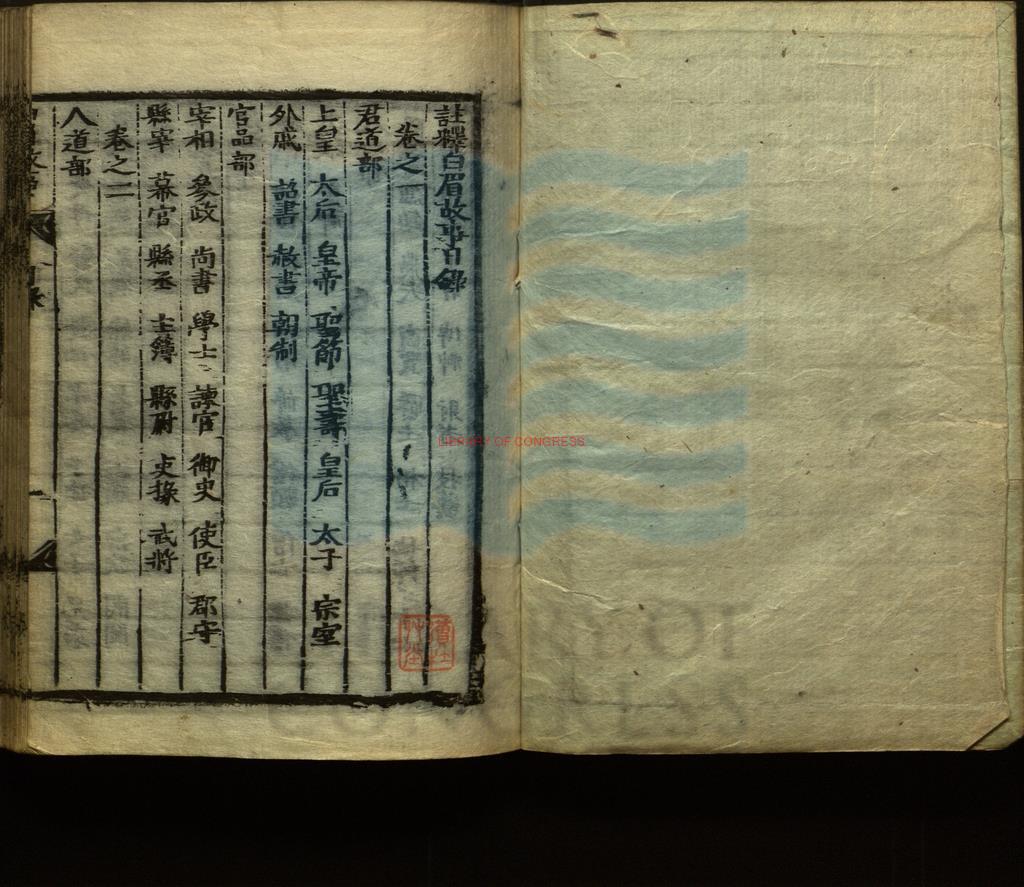 註釋白眉故事目錄
卷之一
君道部
上皇 太后 皇帝 聖節 聖壽 皇后 太子 宗室
外戚 詔書 赦書 朝制
官品部
宰相 參政 尚書 學士 諫官 御史 使臣 郡守
縣宰 幕官 縣丞 主簿 縣尉 吏掾 武將
卷之二
人道部
LIBRARY OF CONGRESS